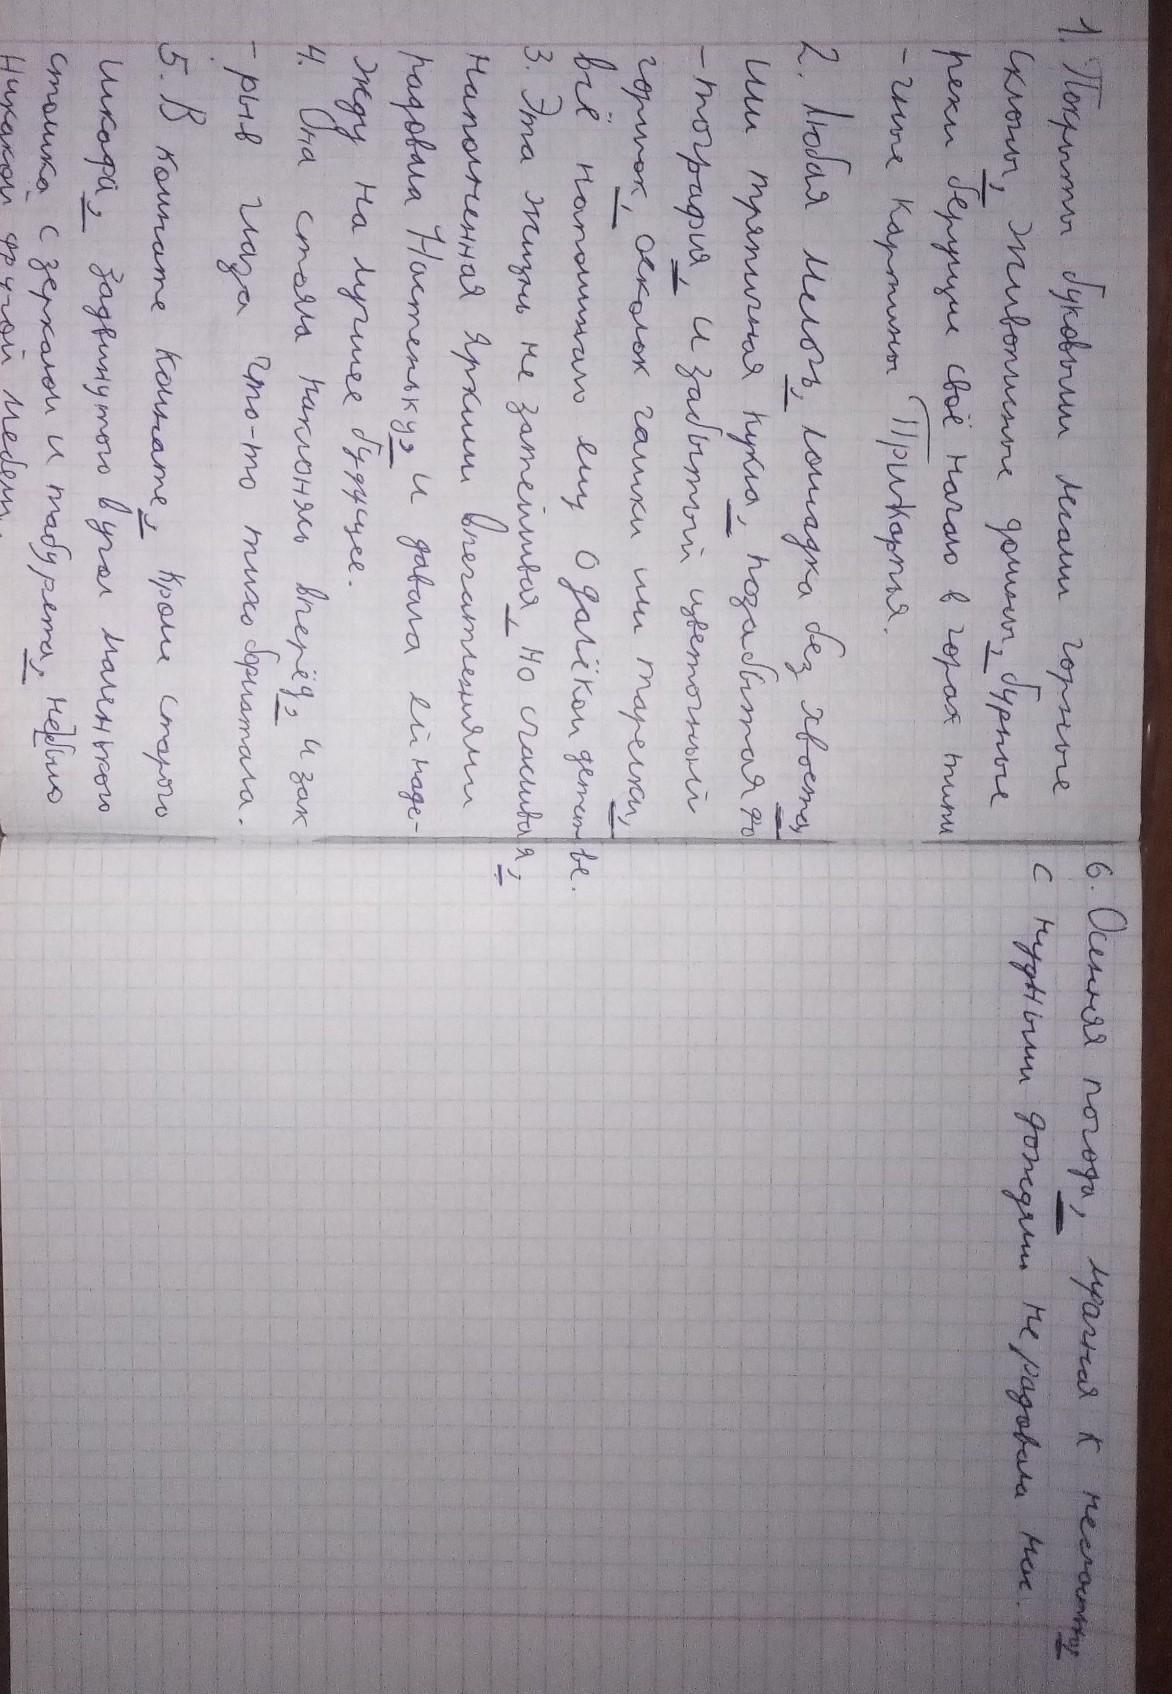 1. Покрыты буковыми лесами горные
склоны, живописные долины, бурные
реки берущие своё начало в горах типи
-чные картины Прикарпья.
2. Любая мелочь, лошадка без хвоста,
или тряпичная кукла, позабытая фо
-тография, и забытый цветочный
горшок, осколок чашки или тарелки,
всё напоминало ему о далёком детстве.
3. Эта жизнь не затейливая, но счасливая,
наполненная яркими впечатлениями
радовала Настеньку, и давала ей наде-
жду на лучшее будущее.
4. Она стояла наклонясь вперёд, и зак
-рыв глаза что-то тихо борматала.
5. В комнате комнате, кроме старого
шкафа, задвинутого в угол маленького
столика с зеркалом и табурета, небыло
никакой другой мебели.
6. Осенняя погода, мрачная к несчастью,
с нудными дождями не радовала нас.